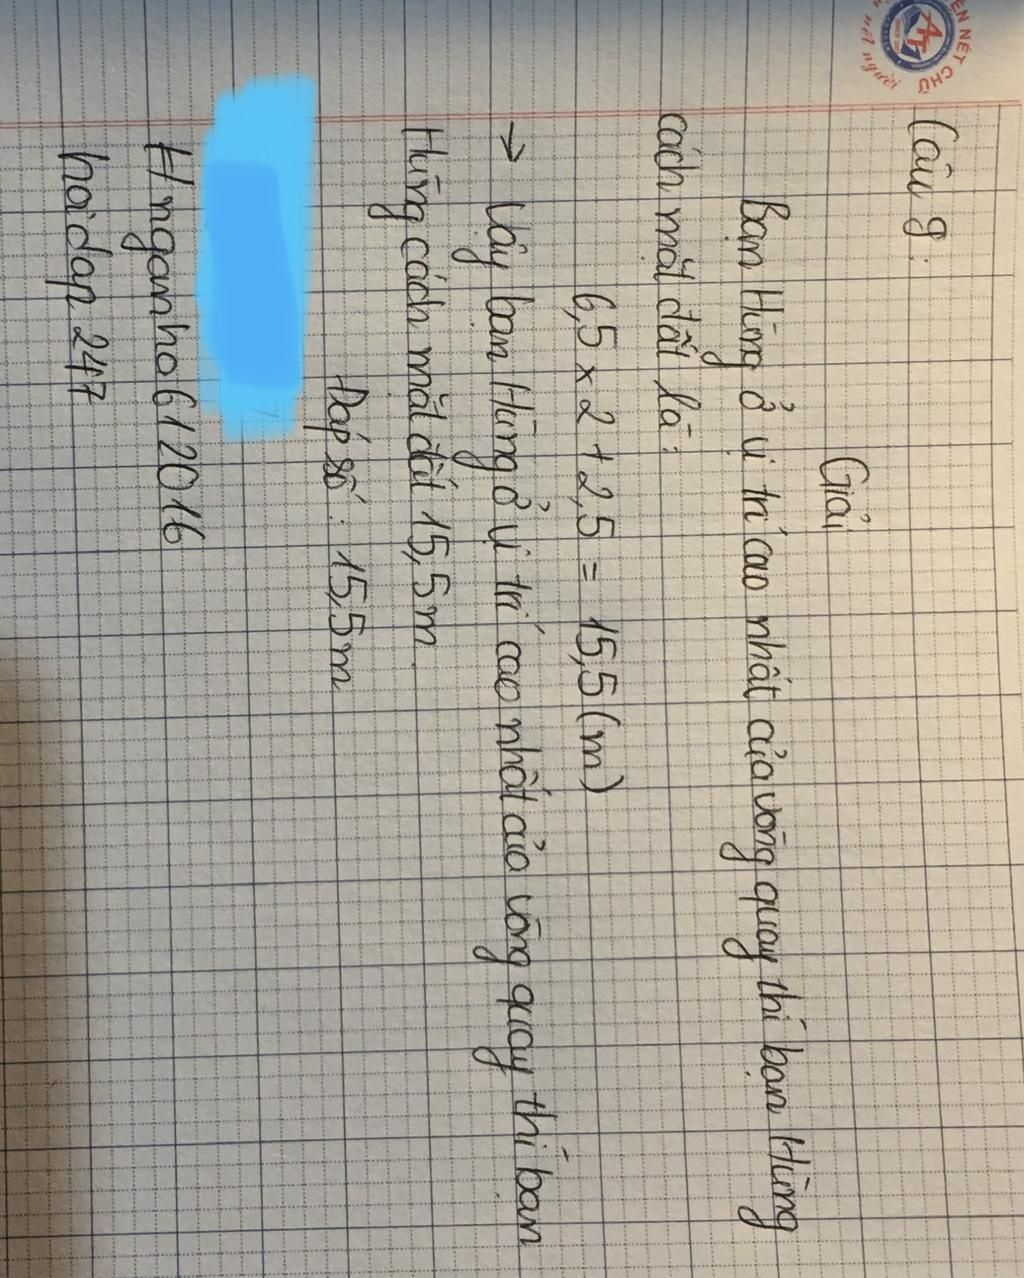 Câu 9:
Giải
Bạn Hùng ở vị trí cao nhất của vòng quay thì bạn Hùng
cách mặt đất là:
6,5 x 2 + 2,5 = 15,5 (m)
→ Vậy bạn Hùng ở vị trí cao nhất của vòng quay thì bạn
Hùng cách mặt đất 15,5m
Đáp số: 15,5m
# nganho612016
hoidap 247
ÈN NÉT CHỮ
nết người